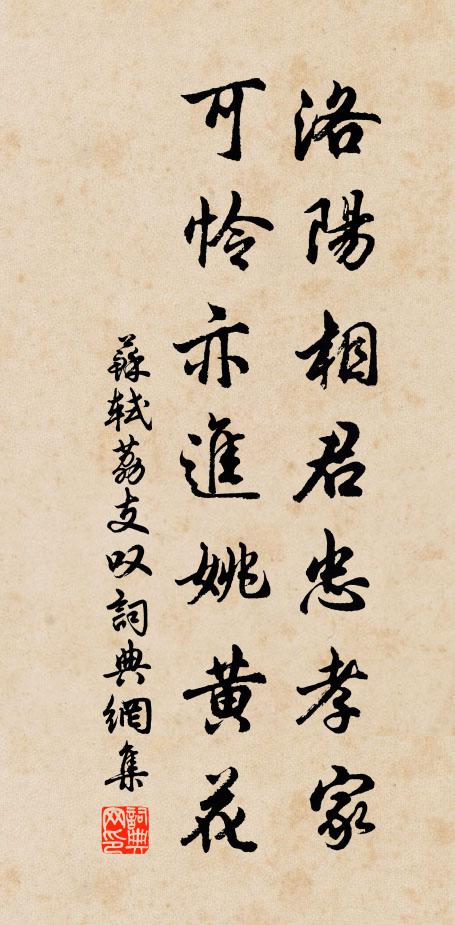 洛陽相君忠孝家
可憐亦進姚黃花
蘇軾荔支叹詞典網集
詞典網印